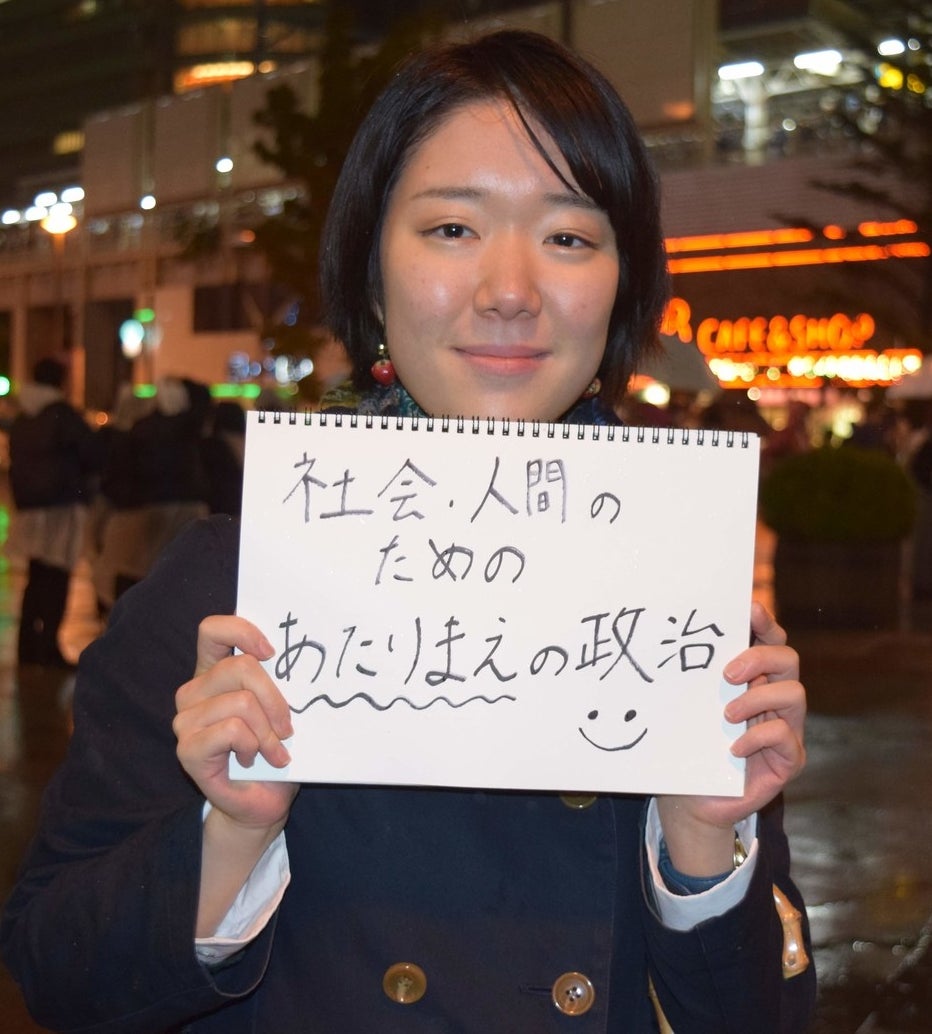 社会・人間の
ための
あたりまえの政治
CAFE&SHOP